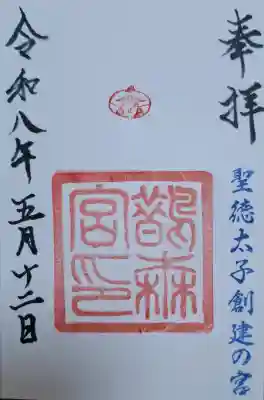 奉拝
聖徳太子創建の宮
鵲森宮印
令和八年五月十二日